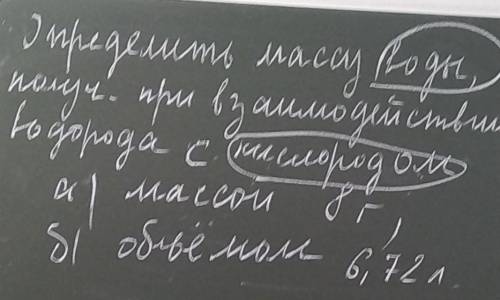 Определить массу воды,
получ. при взаимодействии
водорода с кислородом
а) массой 8 г,
б) объёмом 6,72 л.